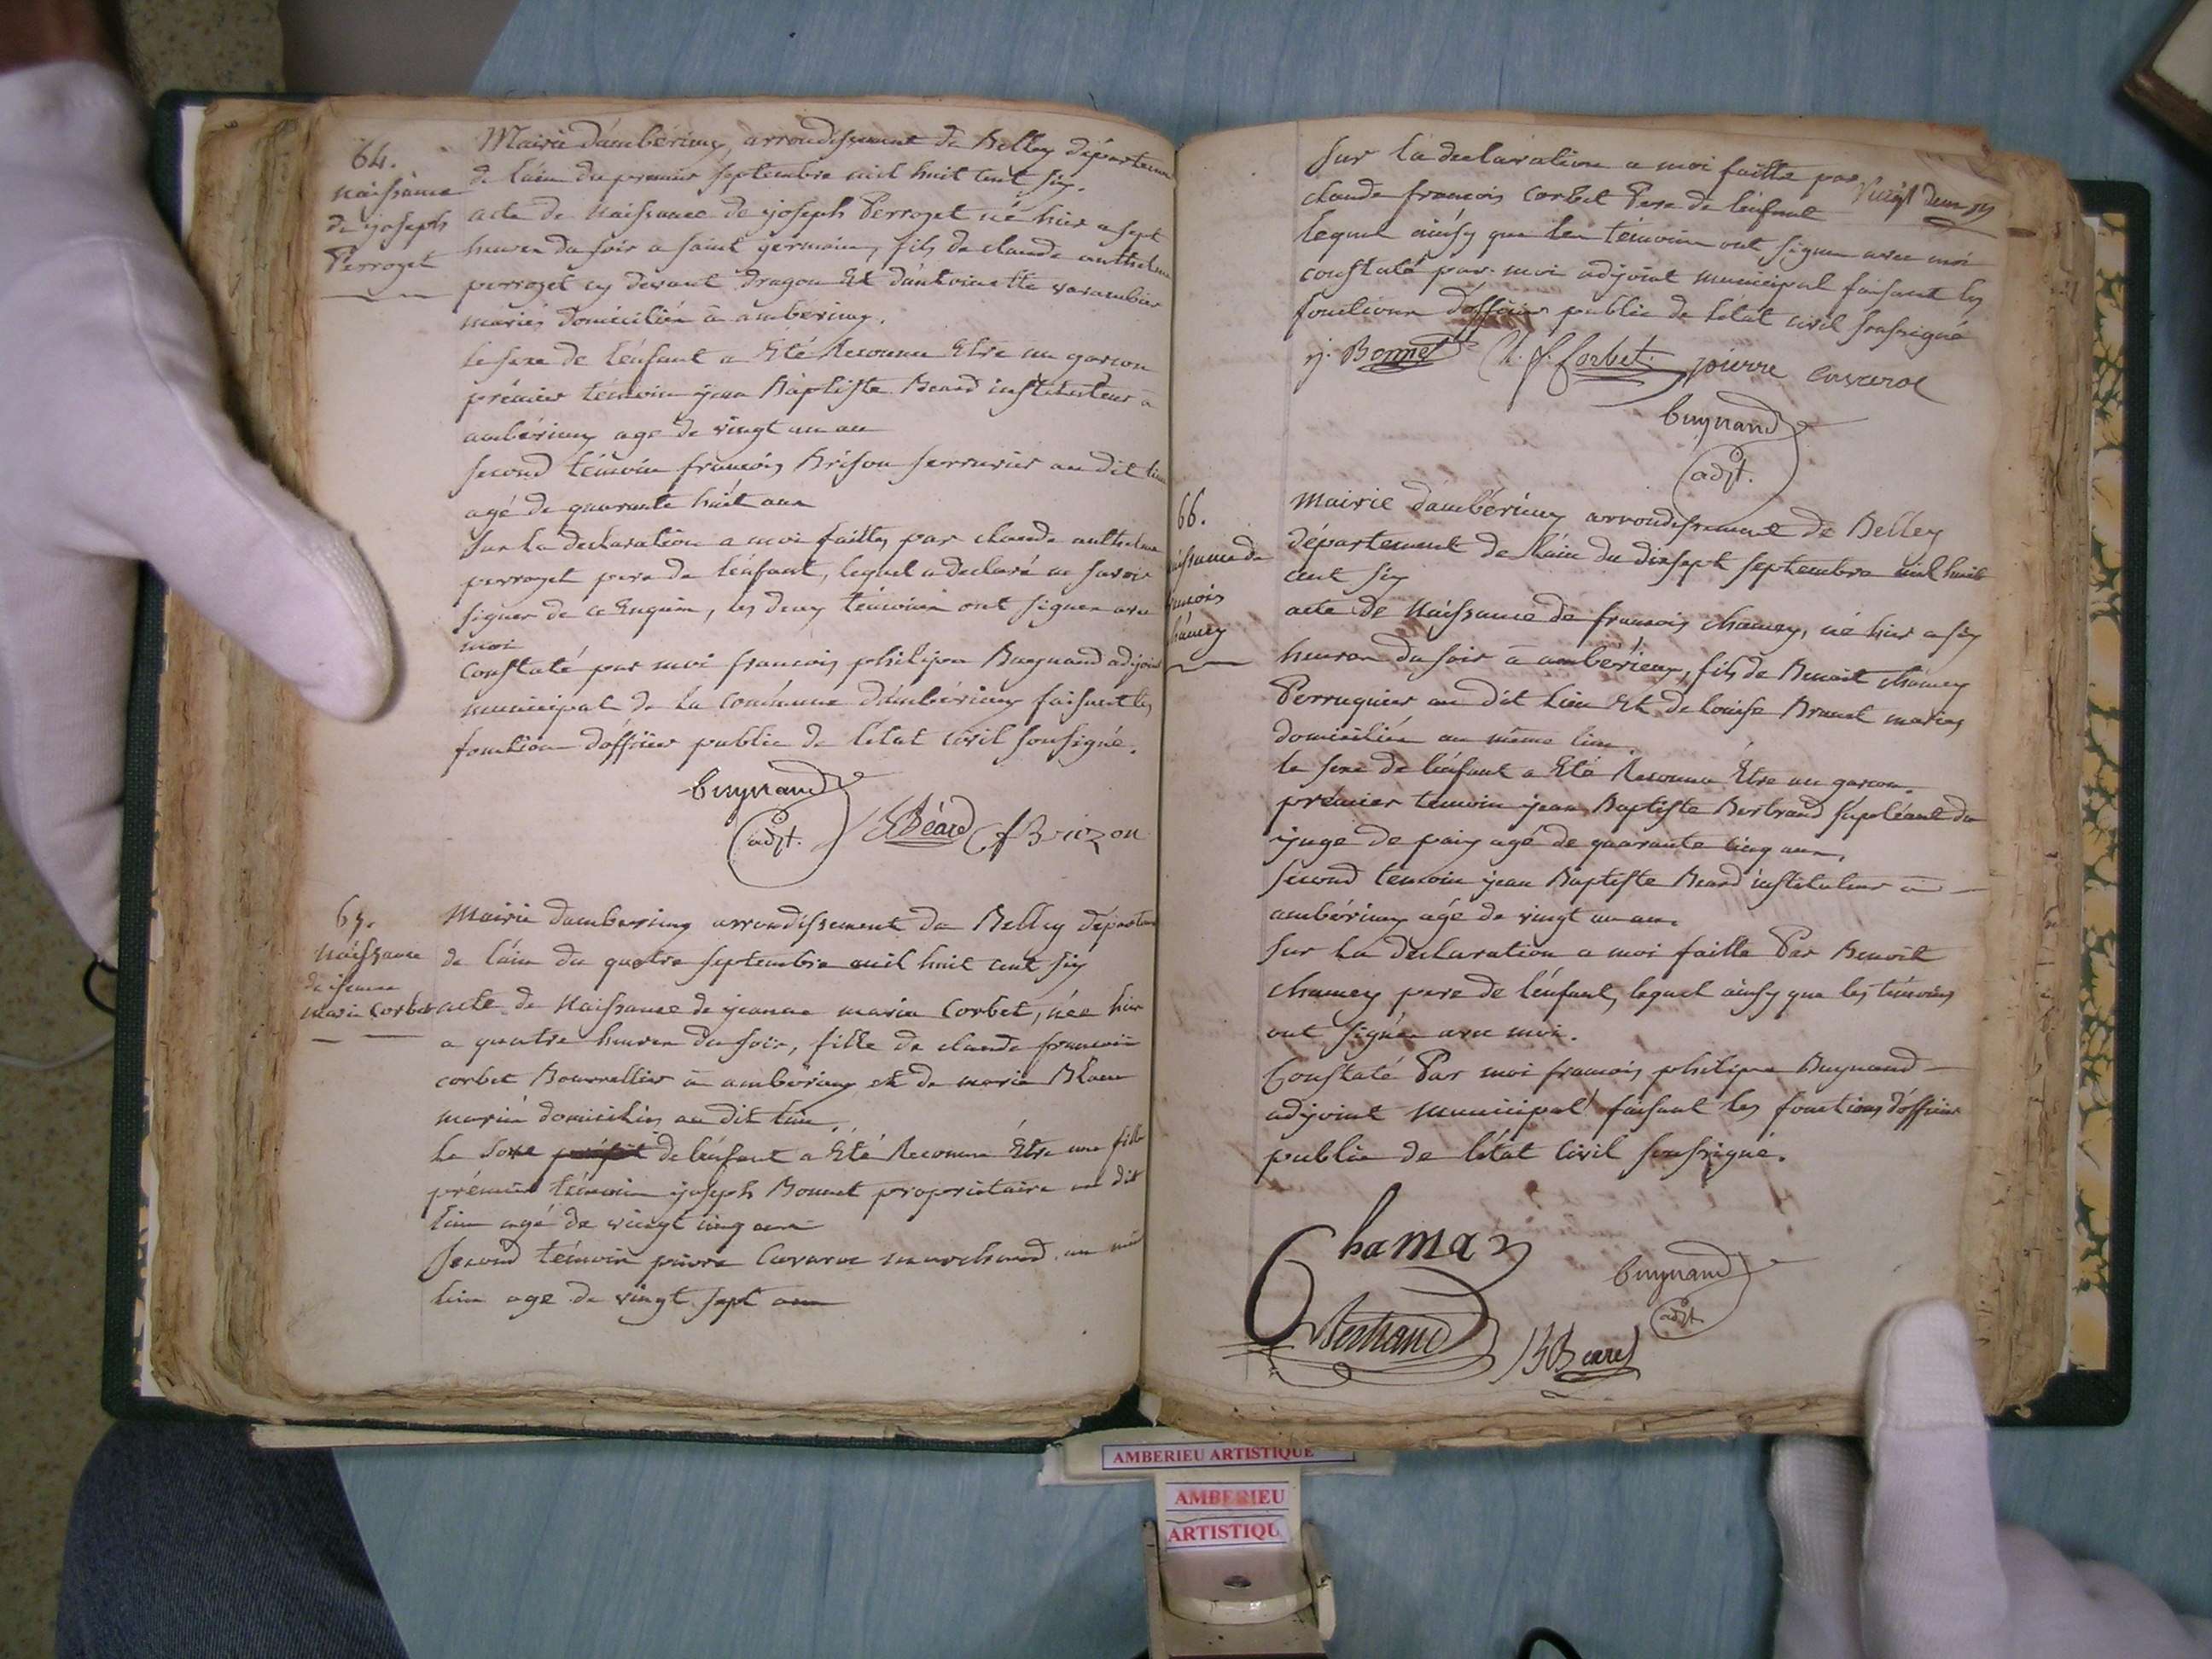 64.
naissance
de joseph
Perrozet
Mairie d'ambérieux, arrondissement de Belley département
de l'ain du premier septembre mil huit cent six.
acte de naissance de joseph Perrozet né hier a sept
heures du soir a saint germain, fils de claude anthelme
perrozet cy devant Dragon Et d'antoinette varambier
mariés domiciliés à ambérieux.
le sexe de l'enfant a Eté Reconnu Etre un garcon
prémier témoin jean Baptiste Beard instituteur a
ambérieux agé de vingt un an
second témoin francois Brison serrurier au dit lieu
agé de quarante huit ans
sur la declaration a moi faitte par claude anthelme
perrozet pere de l'enfant, lequel a declaré ne savoir
signer de ce Enquis, les deux témoins ont signer avec
moi
constaté par moi francois philipe Buynand adjoint
municipal de la commune d'ambérieux faisant les
fonction d'officier public de l'etat civil sousigné.
buynand
adjt.
JB Béard
f Brizon
65.
naissance
de jeanne
marie corbet
Mairie d'amberieux arrondissement de Belley départem
de l'ain du quatre septembre mil huit cent six
acte de naissance de jeanne marie corbet, née hier
a quatre heures du soir, fille de claude francois
corbet Bourrellier à amberieux et de marie Blanc
mariés domiciliés au dit lieu.
le sexe de l'enfant a Eté Reconnu Etre une fille
prémier témoin joseph Bonnet propriétaire au dit
lieu agé de vingt cinq ans
second témoin pierre Cavaroc marchand au mê
lieu age de vingt sept ans
vingt deux
sur la declaration a moi faitte par
claude francois corbet Pere de l'enfant
lequel ainsy que les témoins ont signer avec moi
constaté par moi adjoint municipal faisant les
fonctions d'officier public de l'état civil soussigné
j. Bonnet C. f. Corbet pierre cavaroc
buynand
adjt.
66.
issance de
ancois
hamey
Mairie d'ambérieux arrondissement de Belley
département de l'ain du dixsept septembre mil huit
cent six
acte de Naissance de francois chamey, né hier a six
heures du soir à ambérieux, fils de Benoit chamey
Perruquier au dit lieu Et de louise Brunet mariés
domiciliés au même lieu.
le sexe de l'enfant a Eté Reconnu Etre un garcon.
prémier temoin jean Baptiste Bertrand supléant du
juge de paix agé de quarante cinq ans,
second temoin jean Baptiste Beard instituteur à
ambérieux agé de vingt un an.
sur la declaration a moi faitte Par Benoit
chamey pere de l'enfant, lequel ainsy que les témoins
ont signés avec moi.
Constaté Par moi francois philipe Buynand
adjoint municipal faisant les fonctions d'officier
public de l'état civil soussigné.
Chamay
buynand
adjt.
Bertrand
JB Beard
AMBERIEU ARTISTIQUE
AMBERIEU
ARTISTIQU